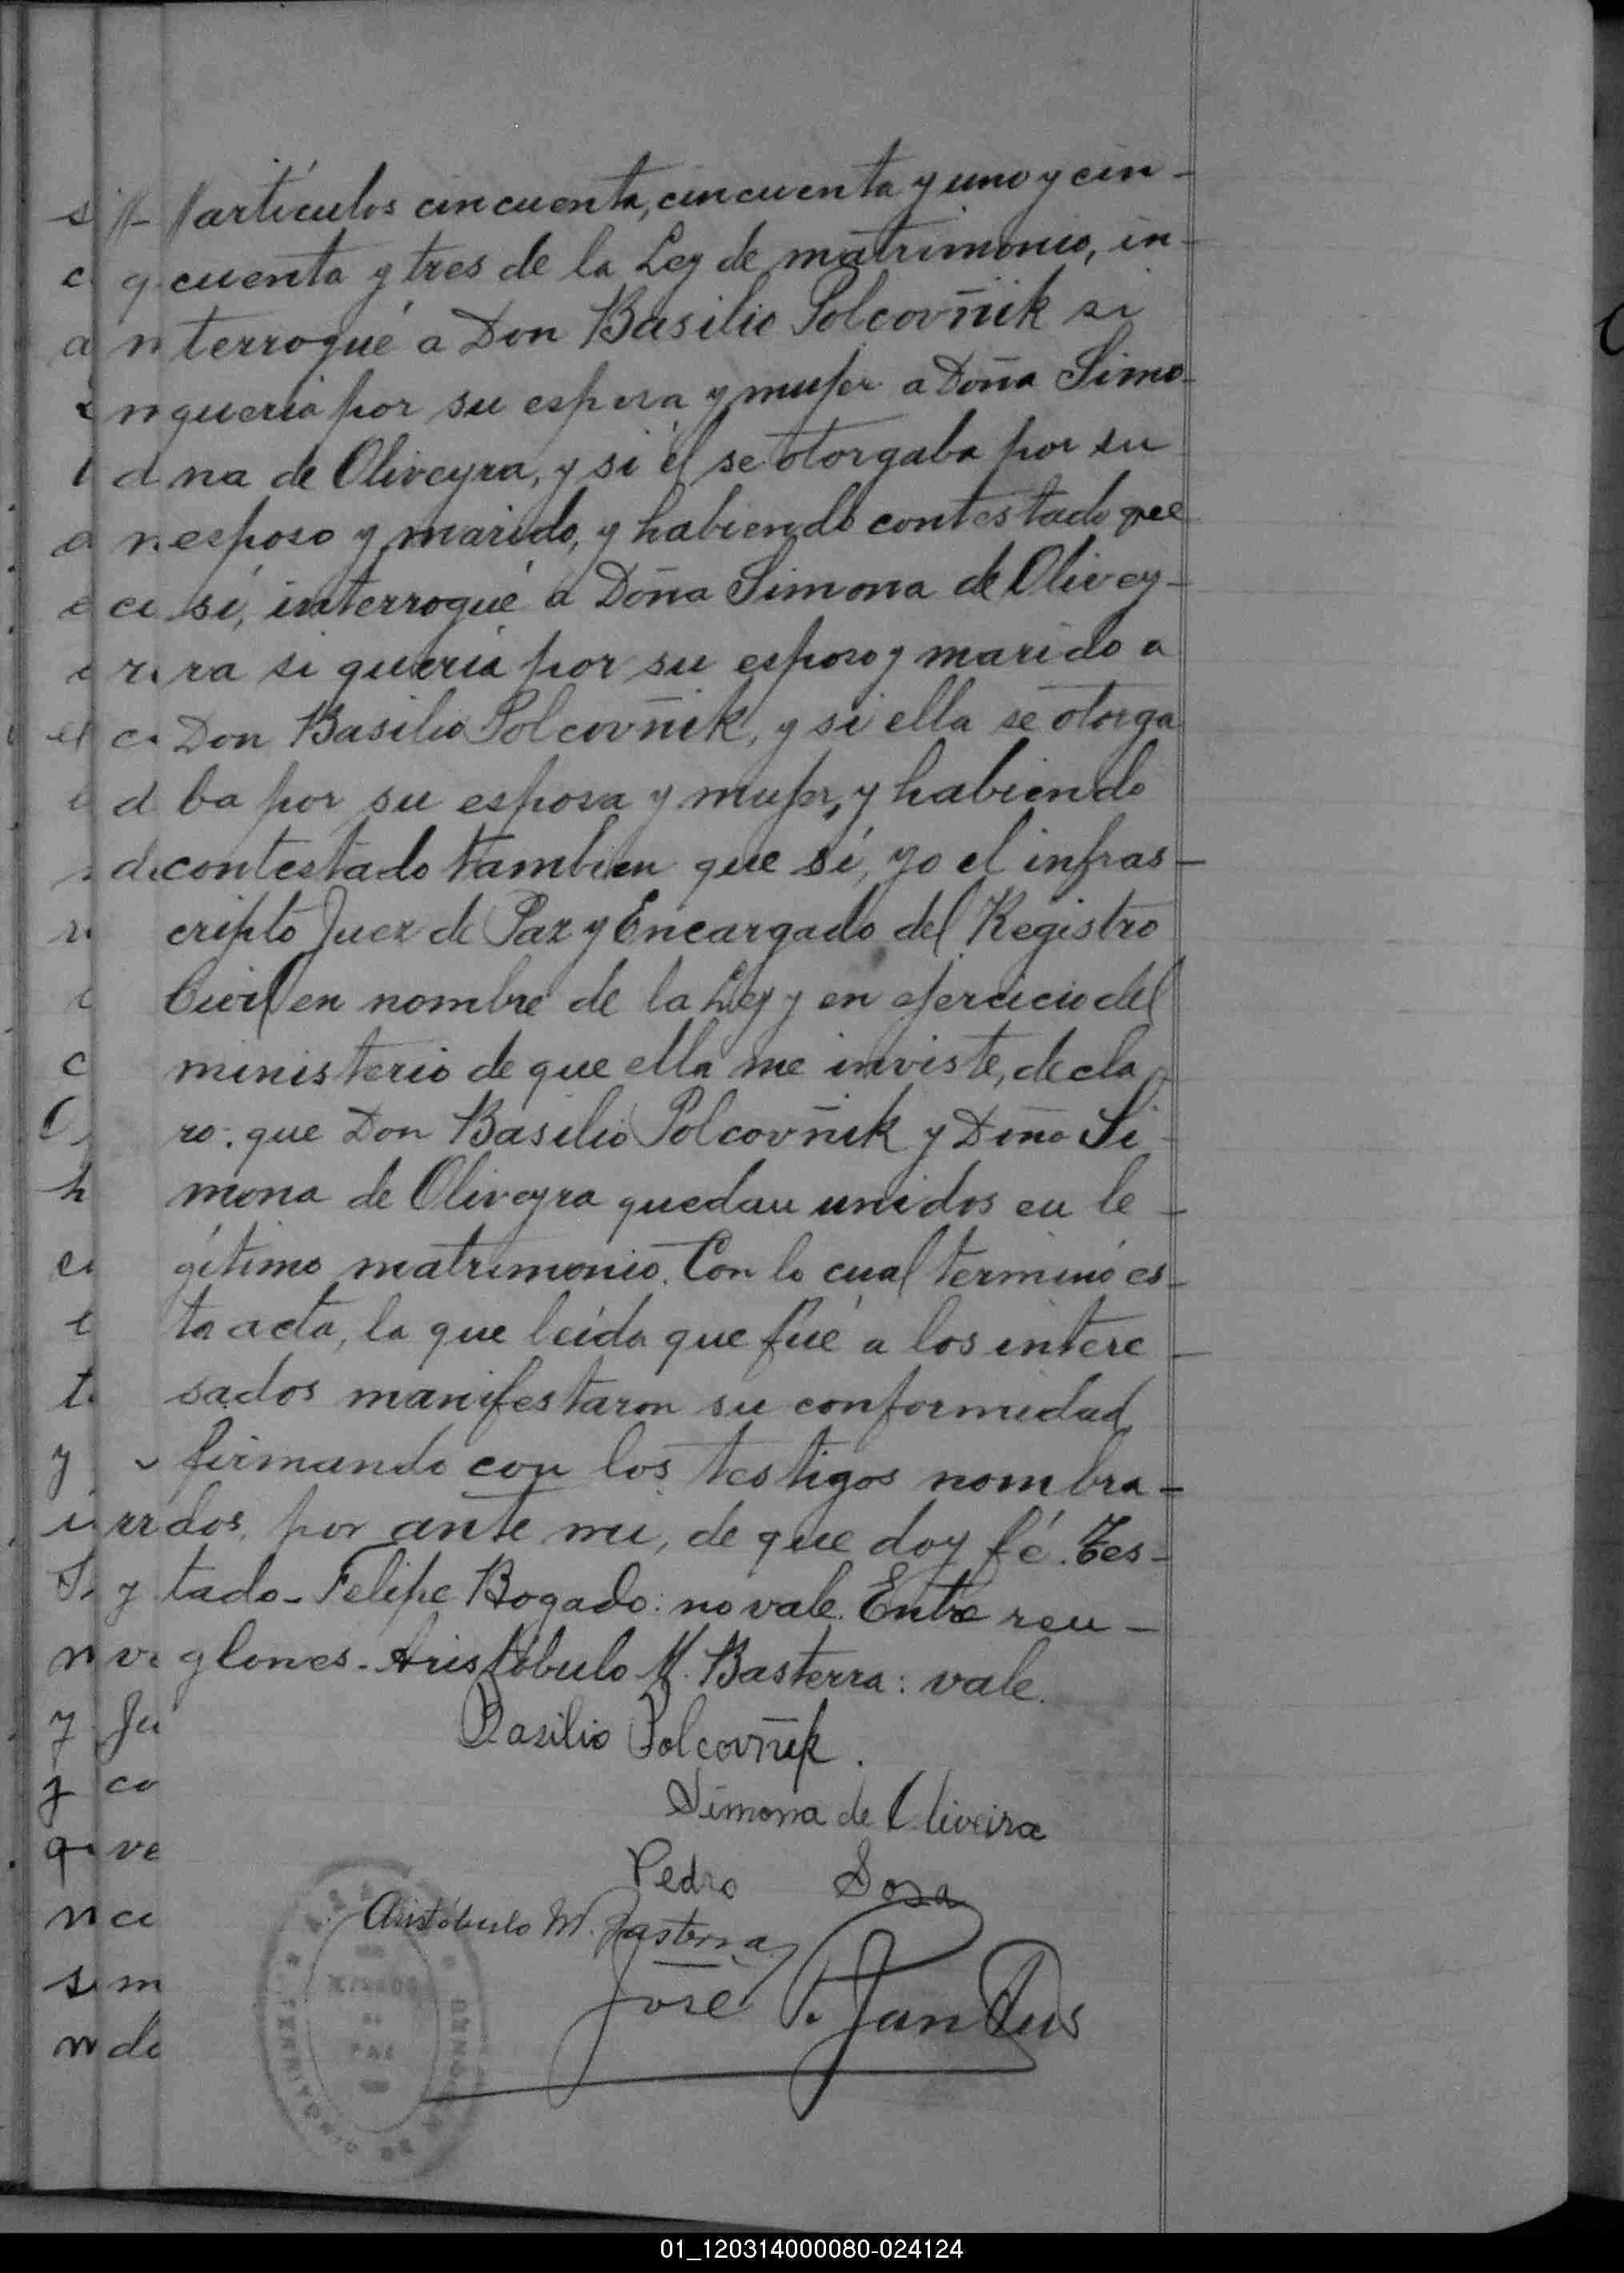 artículos cincuenta, cincuenta y uno y cin-
cuenta y tres de la Ley de matrimonio, in-
terrogué a Don Basilio Polcovñik si
queria por su esposa y mujer a Doña Simo-
na de Oliveyra, y si él se otorgaba por su
esposo y marido, y habiendo contestado que
sí, interrogué a Doña Simona de Olivey-
ra si quería por su esposo y marido a
Don Basilio Polcovñik, y si ella se otorga
ba por su esposa y mujer, y habiendo
contestado tambien que sí, yo el infras-
cripto Juez de Paz y Encargado del Registro
Civil en nombre de la Ley y en ejercicio del
ministerio de que ella me inviste, decla
ro: que Don Basilio Polcovñik y Doña Si-
mona de Oliveyra quedan unidos en le-
gítimo matrimonio. Con lo cual terminó es-
ta acta, la que leída que fué a los intere-
sados manifestaron su conformidad
firmando con los testigos nombra-
dos, por ante mi, de que doy fé. Tes-
tado - Felipe Bogado: no vale. Entre ren-
glones - Aristóbulo M. Basterra: vale.
Basilio Polcovñik.
Simona de Oliveira
Pedro Sosa
Aristóbulo M. Basterra
José
JUZGADO
DE
PAZ
01_120314000080-024124